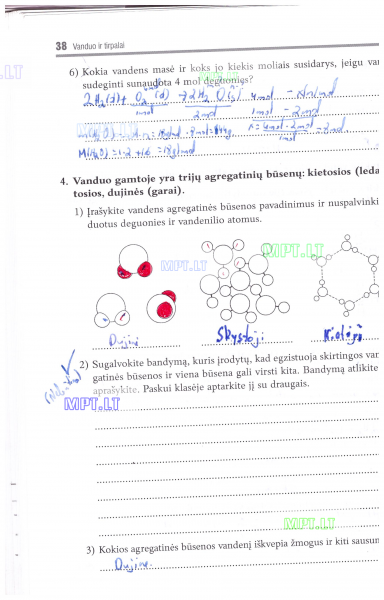 38 Vanduo ir tirpalai
6) Kokia vandens masė ir koks jo kiekis moliais susidarys, jeigu van
sudeginti sunaudota 4 mol deguonies?
2H₂(d) + O₂(d) → 2H₂O
1mol 2mol
4mol
1mol – 2mol
M(H₂O) = 1·2 + 16 = 18g/mol
4. Vanduo gamtoje yra trijų agregatinių būsenų: kietosios (leda
tosios, dujinės (garai).
1) Įrašykite vandens agregatinės būsenos pavadinimus ir nuspalvinki
duotus deguonies ir vandenilio atomus.
MPT.LT
MPT.LT
Dujinė Skystoji Kietoji
2) Sugalvokite bandymą, kuris įrodytų, kad egzistuoja skirtingos van
gatinės būsenos ir viena būsena gali virsti kita. Bandymą atlikite
aprašykite. Paskui klasėje aptarkite jį su draugais.
MPT.LT
MPT.LT
3) Kokios agregatinės būsenos vandenį iškvepia žmogus ir kiti sausum
Dujinė.